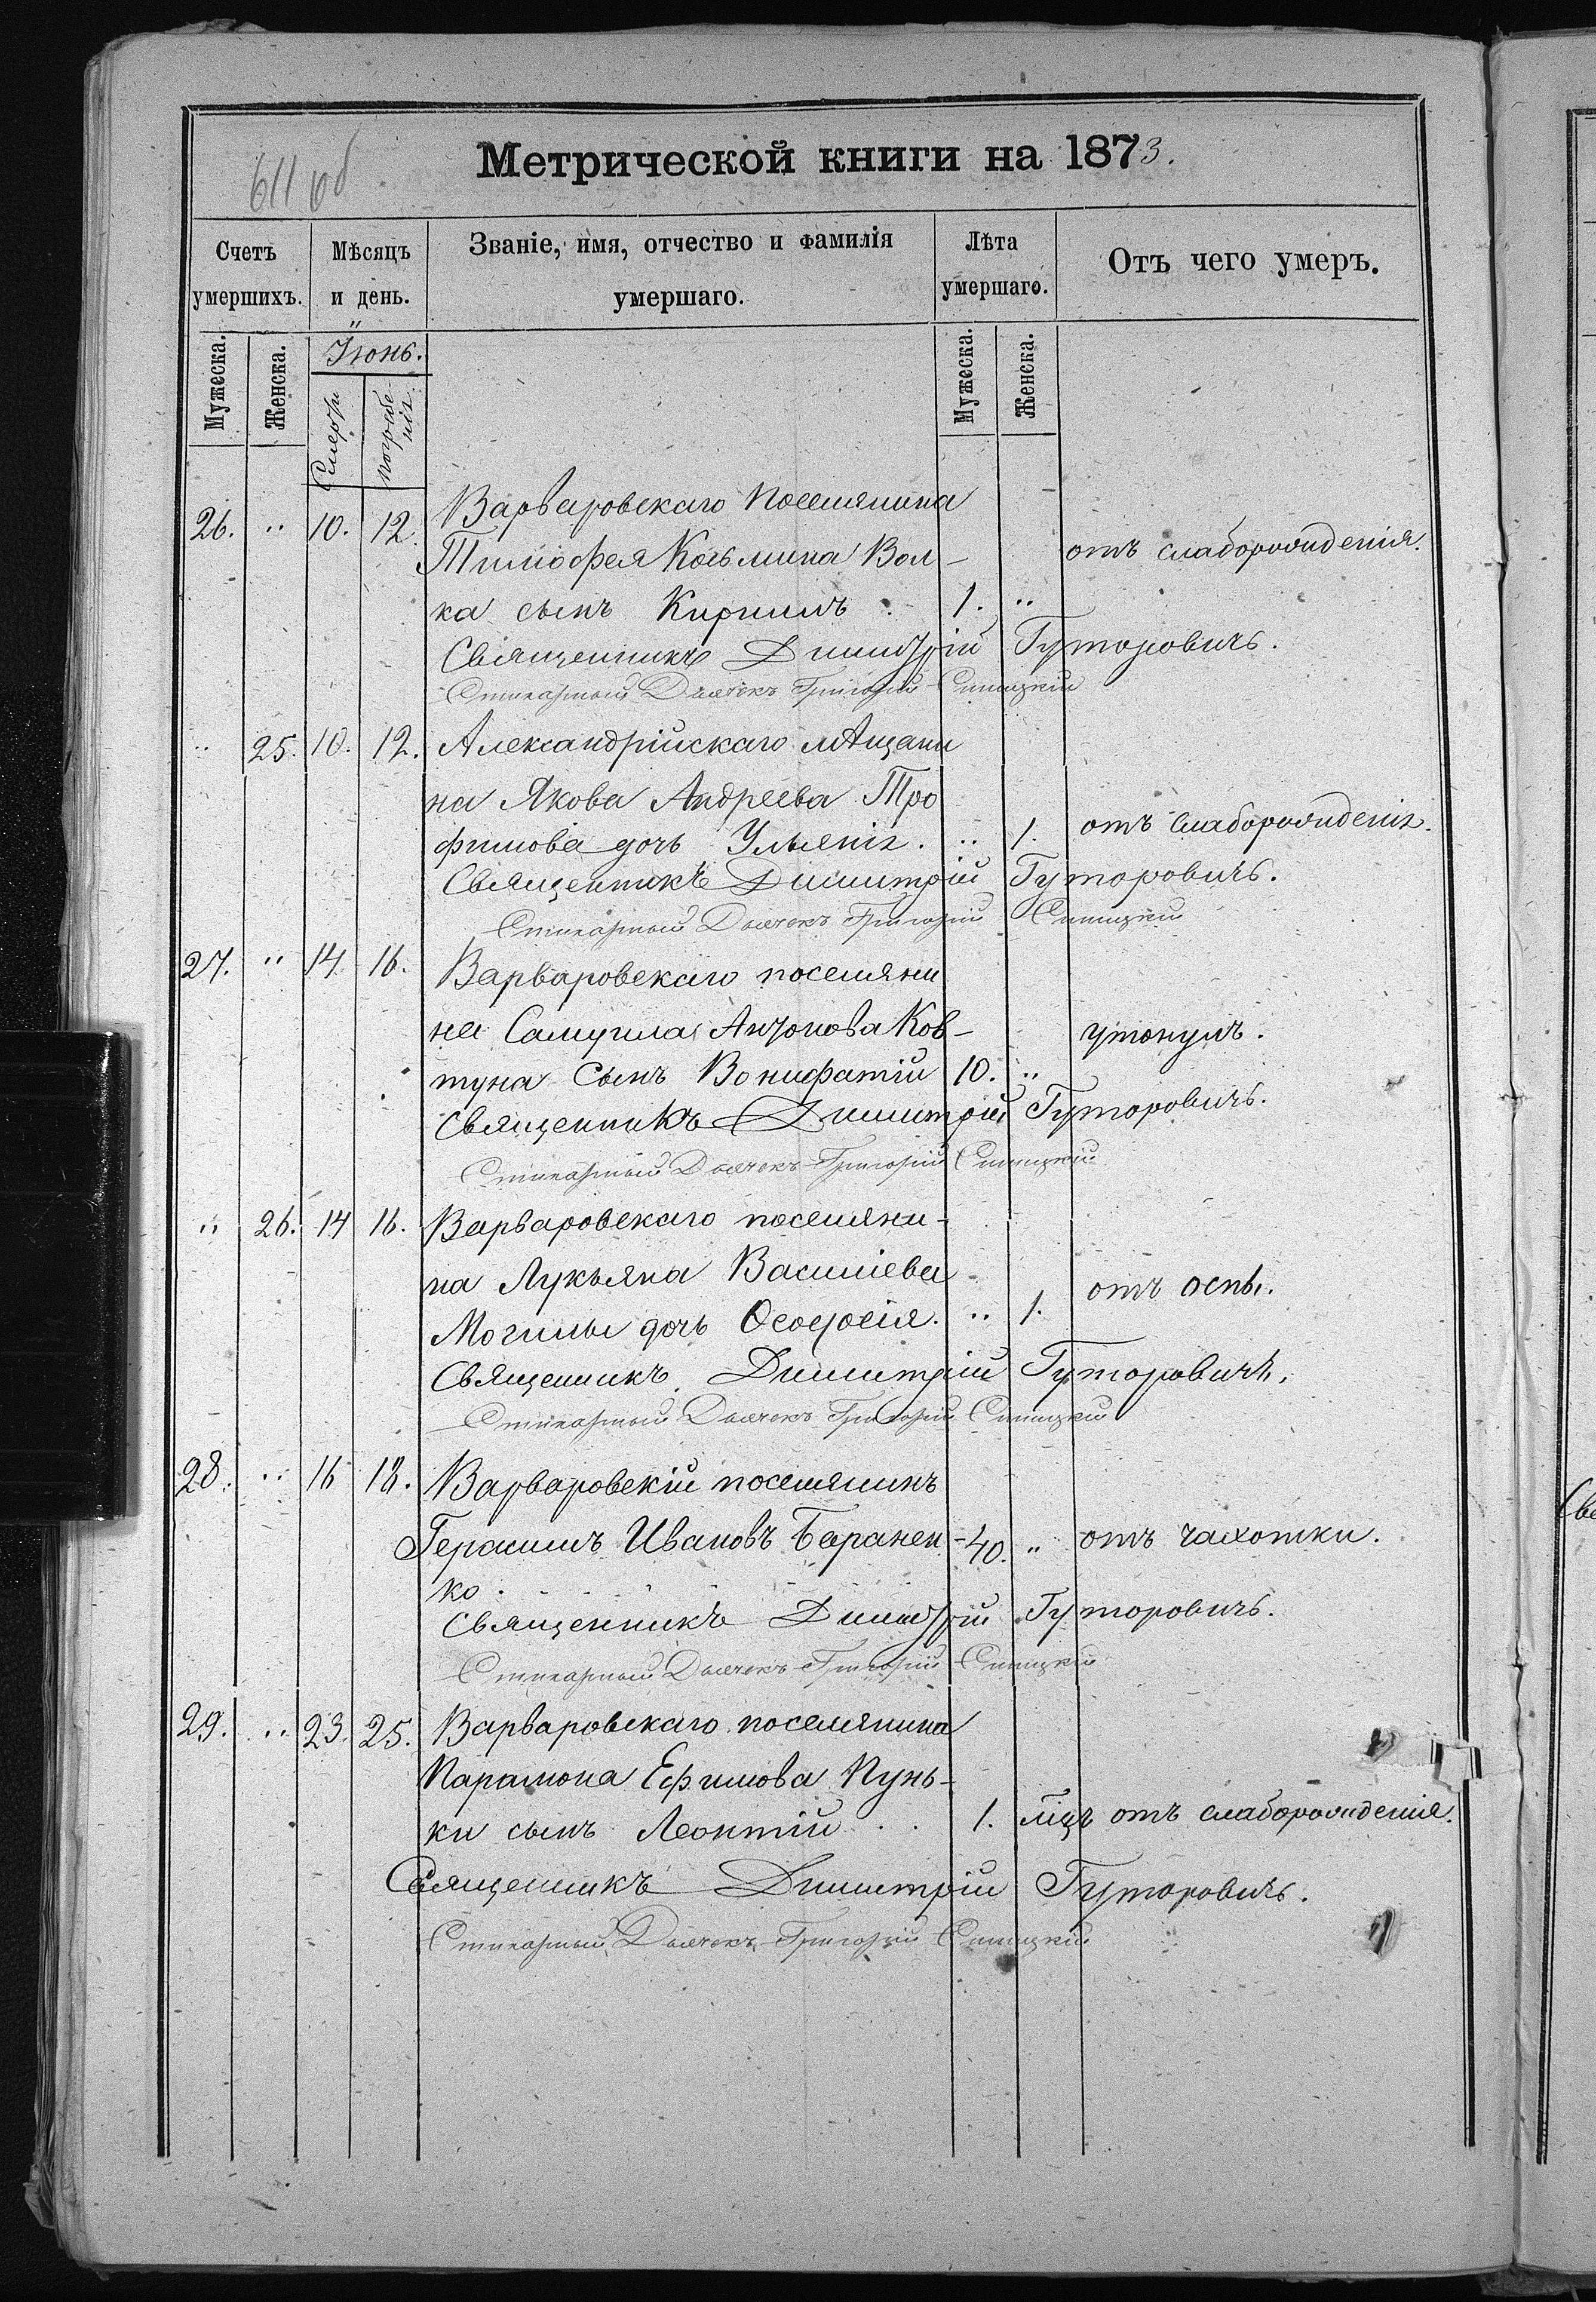 611 об
Метрической книги на 1873.
Счетъ умершихъ.
Мѣсяцъ и день.
Званіе, имя, отчество и фамилія умершаго.
Лѣта умершаго.
Отъ чего умеръ.
Мужеска.
Женска.
Іюнь.
Смерти
погребенія.
Мужеска.
Женска.
26. " 10. 12. Варваровскаго поселянина
Тимофея Козьмина Вол-
отъ слаборожденія.
ка сынъ Кириллъ . 1. "
Священникъ Димитрій Гуторовичъ.
Стихарный Дьячекъ Григорій
" 25. 10. 12. Александрійскаго мѣщани
на Якова Андреева Тро
фимова дочь Ульянія. " 1. отъ слаборожденія.
Священникъ Димитрій Гуторовичъ.
Стихарный Дьячекъ Григорій
27. " 14 16. Варваровскаго поселяни
на Самуила Антонова Ков-
утонулъ.
туна сынъ Вонифатій 10. "
Священникъ Димитрій Гуторовичъ.
Стихарный Дьячекъ Григорій
" 26. 14 16. Варваровскаго поселяни-
на Лукьяна Василіева
отъ оспы.
Могилы дочь Ѳеодосія. " 1.
Священникъ Димитрій Гуторовичъ.
Стихарный Дьячекъ Григорій
28. " 16 18. Варваровскій поселянинъ
Герасимъ Ивановъ Баранен- 40. " отъ чахотки.
ко.
Священникъ Димитрій Гуторовичъ.
Стихарный Дьячекъ Григорій
29. " 23. 25. Варваровскаго поселянина
Парамона Ефимова Пунь-
ки сынъ Леонтій . . 1. мцъ отъ слаборожденія.
Священникъ Димитрій Гуторовичъ.
Стихарный Дьячекъ Григорій